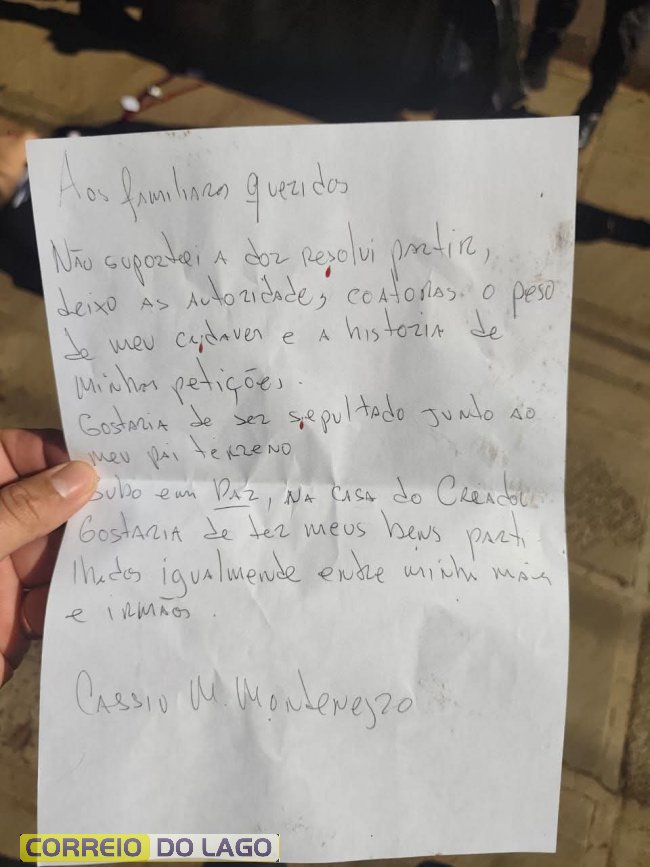 Aos familiares queridos
Não suportei a dor resolvi partir,
deixo as autoridades coatoras o peso
de meu cadaver e a historia de
minhas petições.
Gostaria de ser sepultado junto ao
meu pai terreno
Subo em PAZ, na casa do Creador
Gostaria de ter meus bens parti
lhados igualmente entre minha mãe
e irmãos.
Cassio M. Montenegro
CORREIO DO LAGO